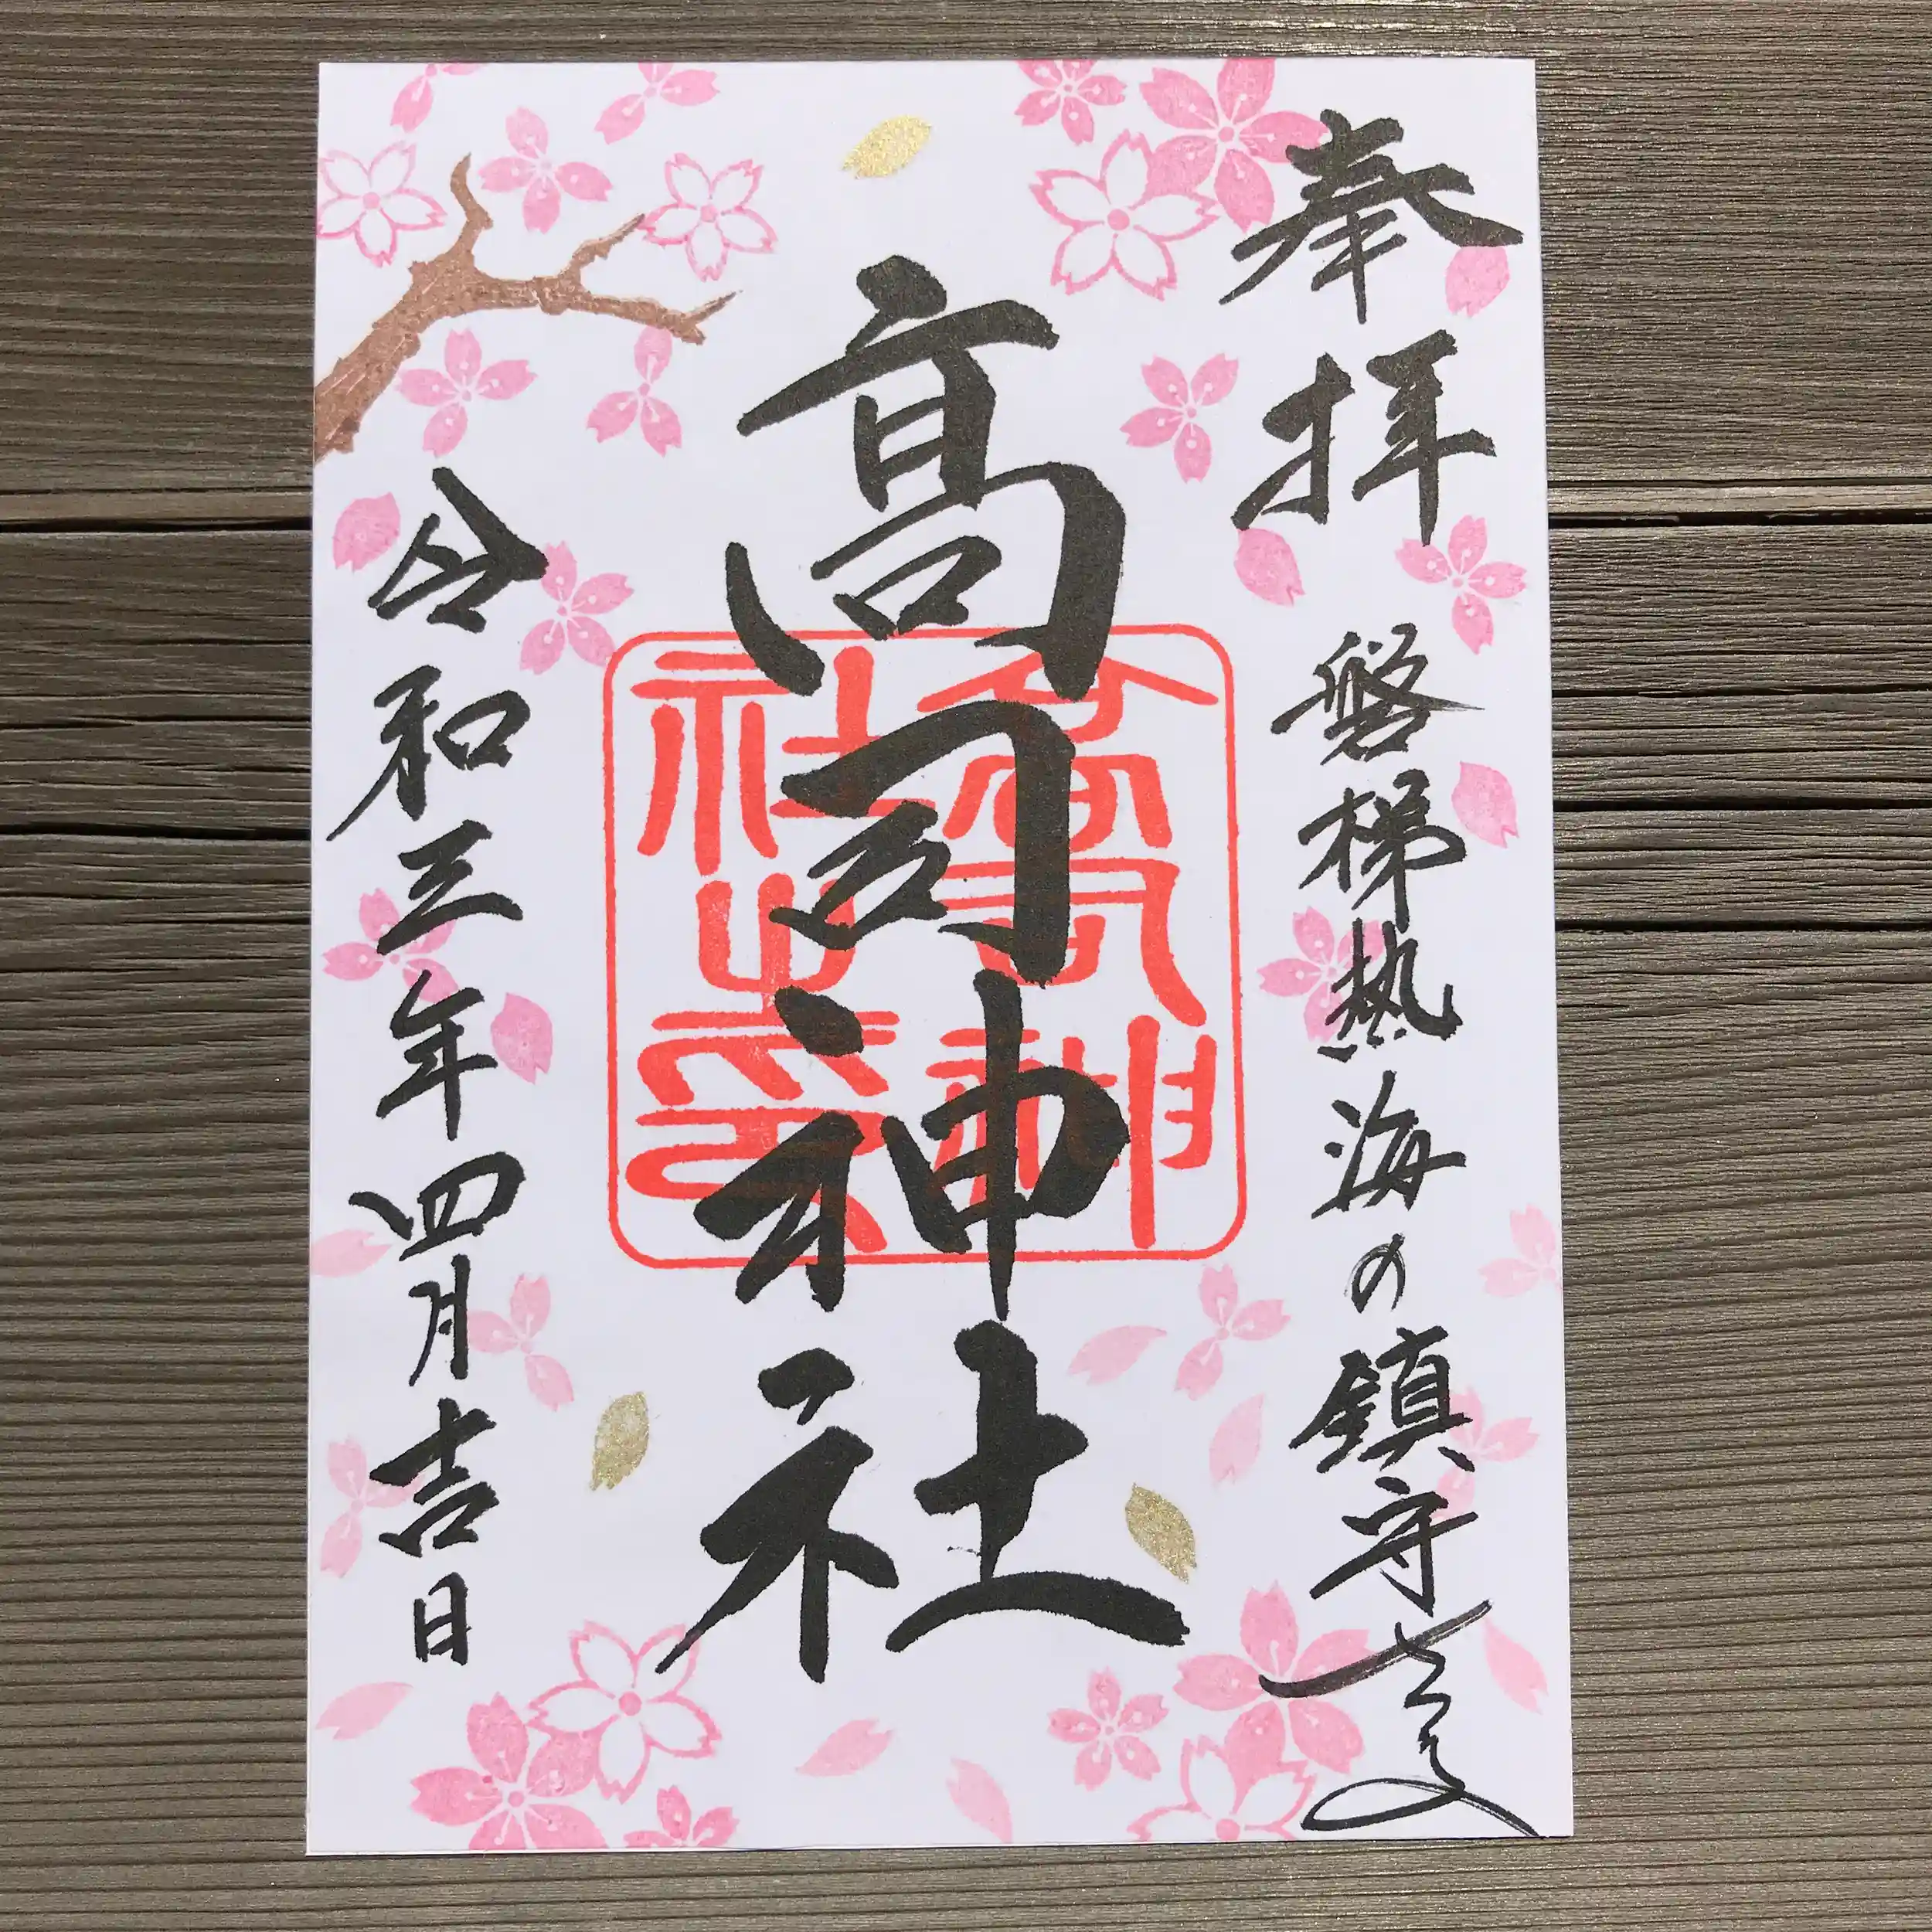 奉拝
磐梯熱海の鎮守
高司神社
高司神社之印
令和三年四月吉日